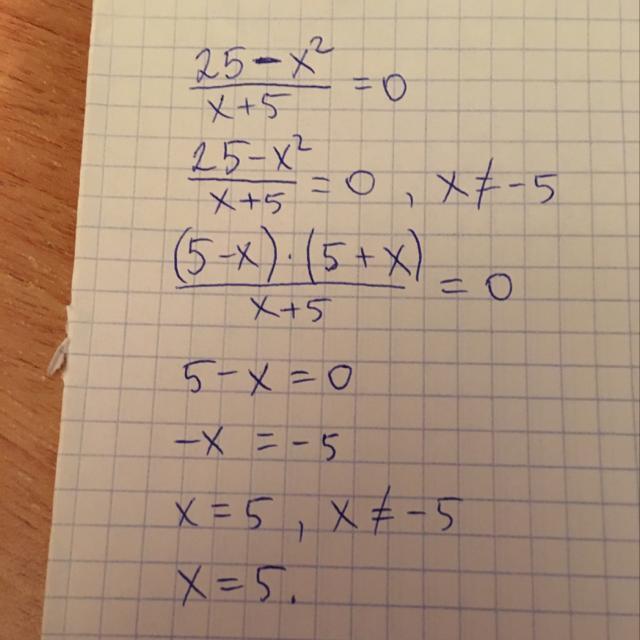 (25-x²)/(x+5) = 0
(25-x²)/(x+5) = 0 , x ≠ -5
((5-x)·(5+x))/(x+5) = 0
5-x = 0
-x = -5
x = 5 , x ≠ -5
x = 5.